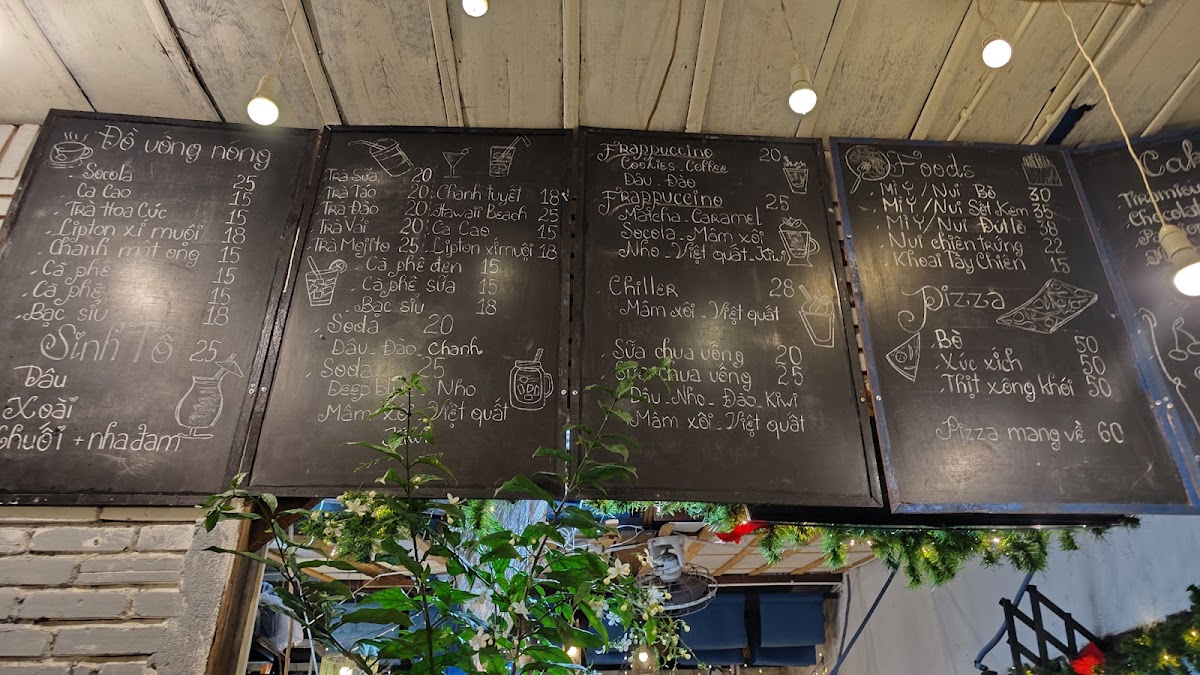 Đồ uống nóng
Socola 25
Ca Cao 15
Trà Hoa Cúc 25
Lipton xí muội 18
Chanh mật ong 18
Cà phê 15
Cà phê 15
Bạc sỉu 18
Sinh Tố 25
Dâu
Xoài
Chuối + nha đam
Trà sữa 20
Trà Táo 20
Trà Đào 20
Trà Vải 20
Trà Mojito 25
Chanh tuyết 18
Hawaii Beach 25
Ca Cao 15
Lipton xí muội 18
Cà phê đen 15
Cà phê sữa 15
Bạc sỉu 18
Soda 20
Dâu - Đào - Chanh
Soda 25
Deep blue - Nho
Mâm xôi - Việt quất
Kiwi
Frappuccino 20
Cookies - Coffee
Dâu - Đào
Frappuccino 25
Matcha - Caramel
Socola - Mâm xôi
Nho - Việt quất - Kiwi
Chiller 28
Mâm xôi - Việt quất
Sữa chua uống 20
Sữa chua uống 25
Dâu - Nho - Đào - Kiwi
Mâm xôi - Việt quất
Foods
Mì Ý / Nui Bò 30
Mì Ý / Nui Sốt Kem 35
Mì Ý / Nui 38
Nui chiên trứng 22
Khoai Tây Chiên 15
Pizza
Bò 50
Xúc xích 50
Thịt xông khói 50
Pizza mang về 60